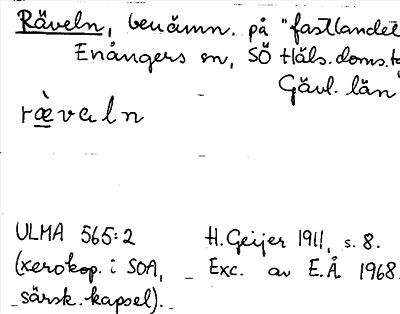 Räveln, benämn. på "fastlandet
Enångers sn, SÖ Häls. doms.
Gävl. län
ræ̀valn
ULMA 565:2 H. Geijer 1911, s. 8.
(xerokop. i SOA, Exc. av E.Å. 1968.
särsk. kapsel).